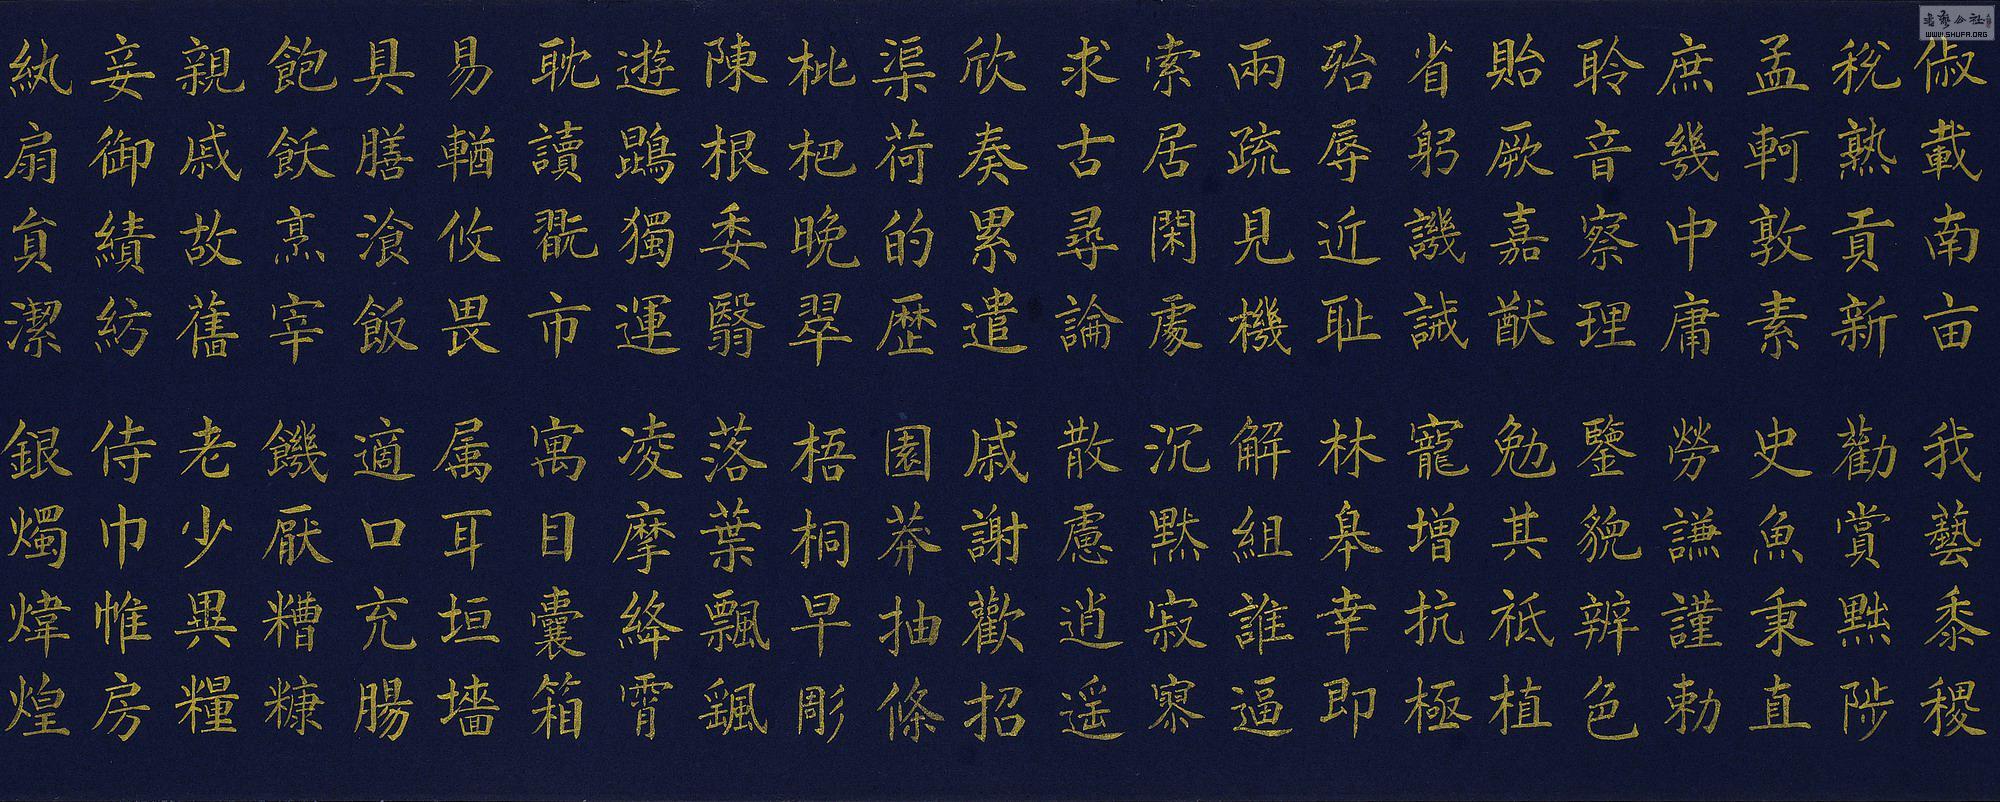 俶載南亩我藝黍稷
稅熟貢新勸賞黜陟
孟軻敦素史魚秉直
庶幾中庸勞謙謹勅
聆音察理鑒貌辨色
貽厥嘉猷勉其祗植
省躬譏誡寵增抗極
殆辱近耻林皋幸即
兩疏見機解組誰逼
索居閑處沉默寂寥
求古尋論散慮逍遥
欣奏累遣戚謝歡招
渠荷的歷園莽抽條
枇杷晚翠梧桐早彫
陳根委翳落葉飄颻
遊鵾獨運凌摩絳霄
耽讀翫市寓目囊箱
易輶攸畏属耳垣墻
具膳湌飯適口充腸
飽飫烹宰饑厭糟糠
親戚故舊老少異糧
妾御績紡侍巾帷房
紈扇員潔銀燭煒煌
WWW.SHUFA.ORG